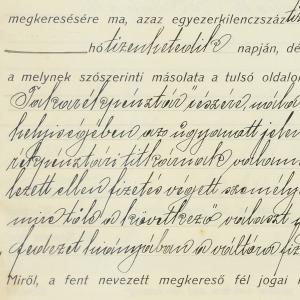 megkeresésére ma, azaz egyezerkilenczszáz ti
hó tizenhetedik napján, dé
a melynek szószerinti másolata a tulsó oldalo
Takarékpénztár" részére, váltó
helyiségében, az ügyamott jelen
rékpénztári titkárnak valam
lezett ellen fizetés végett személy
mire tőle a következő választ
fedezet hiányában a váltóra fiz
Miről, a fent nevezett megkereső fél jogai